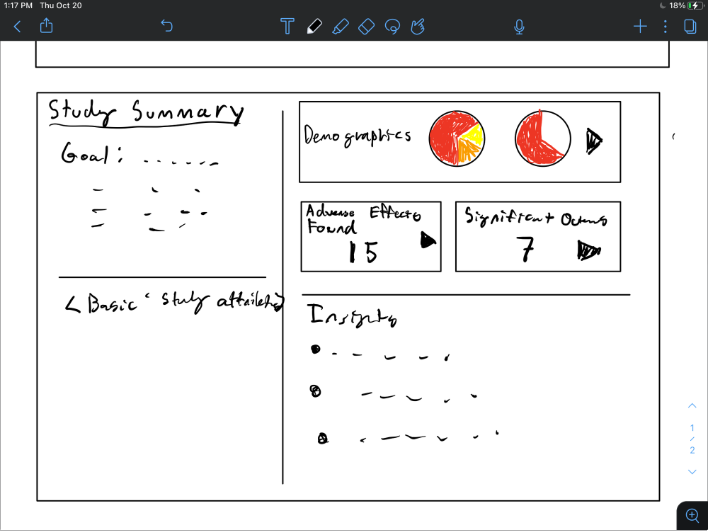 1:17 PM Thu Oct 20
18%
Study Summary
Goal:
< Basic Study
Demographics
Adverse Effects
Found
15
Significant
7
Insights
1
/
2